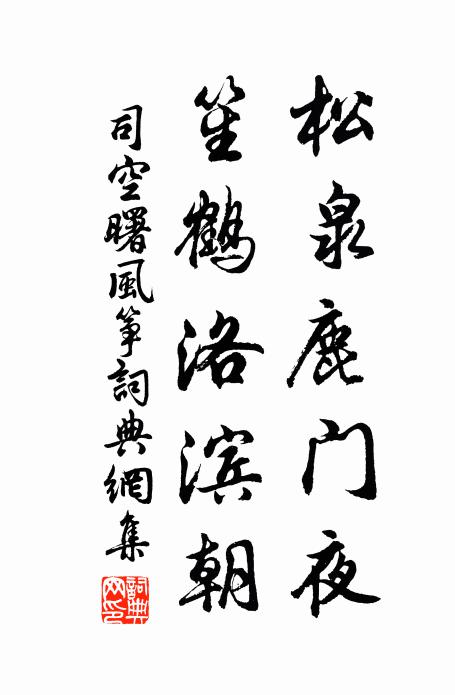 松泉鹿门夜
笙鹤洛滨朝
司空曙風箏詞典網集
詞典网印